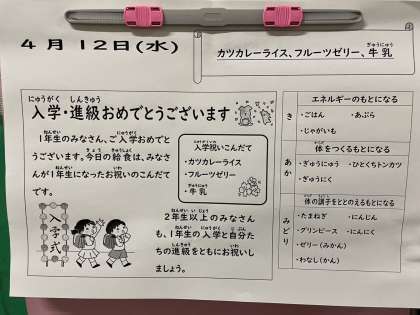 4月12日(水)
カツカレーライス、フルーツゼリー、牛乳
入学・進級おめでとうございます
1年生のみなさん、ご入学おめでと
うございます。今日の給食は、みなさ
んが1年生になったお祝いのこんだて
です。
入学祝いこんだて
・カツカレーライス
・フルーツゼリー
・牛乳
入学式
2年生以上のみなさん
も、1年生の入学と自分た
ちの進級をともにお祝いし
ましょう。
エネルギーのもとになる
き
・ごはん ・あぶら
・じゃがいも
体をつくるもとになる
あか
・ぎゅうにゅう ・ひとくちトンカツ
・ぎゅうにく
体の調子をととのえるもとになる
みどり
・たまねぎ ・にんじん
・グリンピース ・にんにく
・ゼリー(みかん)
・わなし(かん)